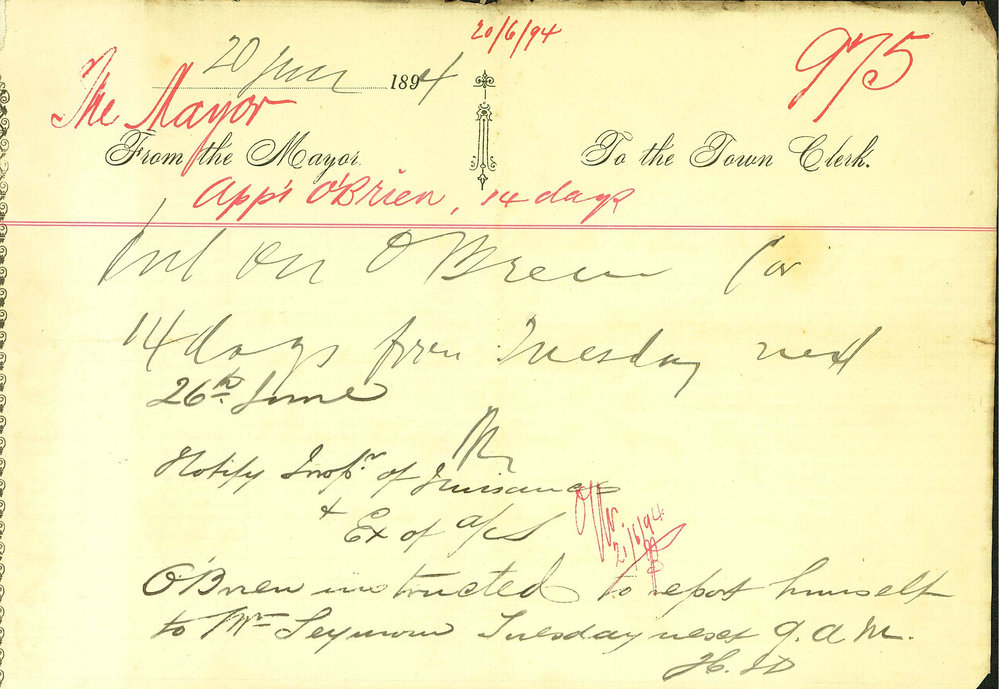 20/6/94
975
20 June 1894
The Mayor
From the Mayor. To the Town Clerk.
App't O'Brien, 14 days
put on O'Brien for
14 days from Tuesday next
26th June
M
Notify Inspr of Nuisances
+ Ex of a/cs
21/6/94
O'Brien instructed to report himself
to Mr Seymour Tuesday next 9. a M.